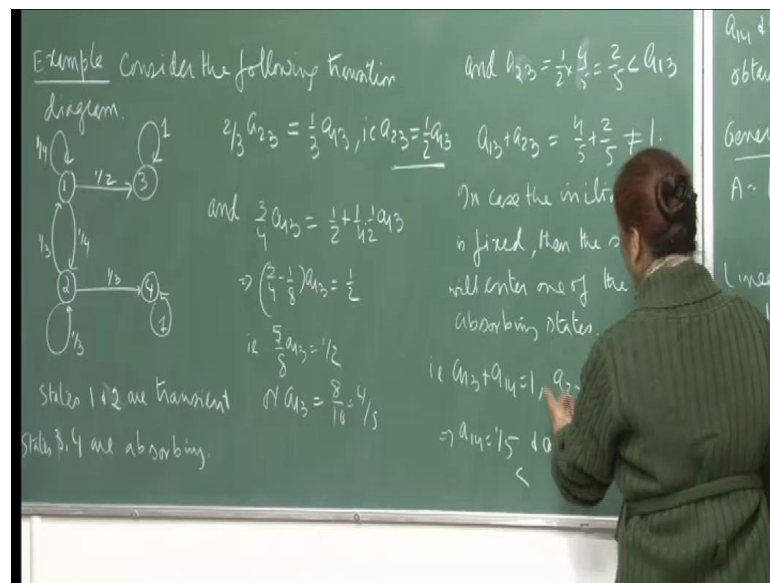 Example Consider the following transition
diagram.
1/4
1
1
1/2
3
1/3
1/4
2
1/3
4
1/3
1
States 1 & 2 are transient
States 3, 4 are absorbing.
2/3 a23 = 1/3 a13, ie a23 = 1/2 a13
and 3/4 a13 = 1/2 + 1/4 · 1/2 a13
⇒ (3/4 - 1/8) a13 = 1/2
ie 5/8 a13 = 1/2
or a13 = 8/10 = 4/5
and a23 = 1/2 × 4/5 = 2/5 < a13
a13 + a23 = 4/5 + 2/5 ≠ 1.
In case the
is fixed, then the
will enter one of the
absorbing states.
ie a13 + a14 = 1,
⇒ a14 = 1/5 &
<
a14
A =